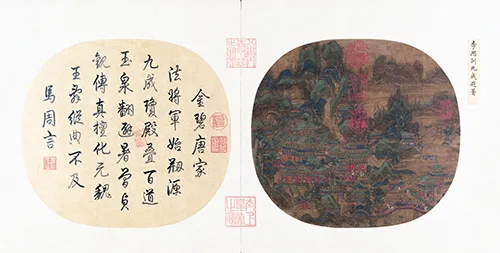 李思訓九成避暑
金碧唐家
法將軍始源
九成瓊殿疊百道
玉泉翻避暑曾貞
觀傳真擅化元魏
王縱典不及
馬周言